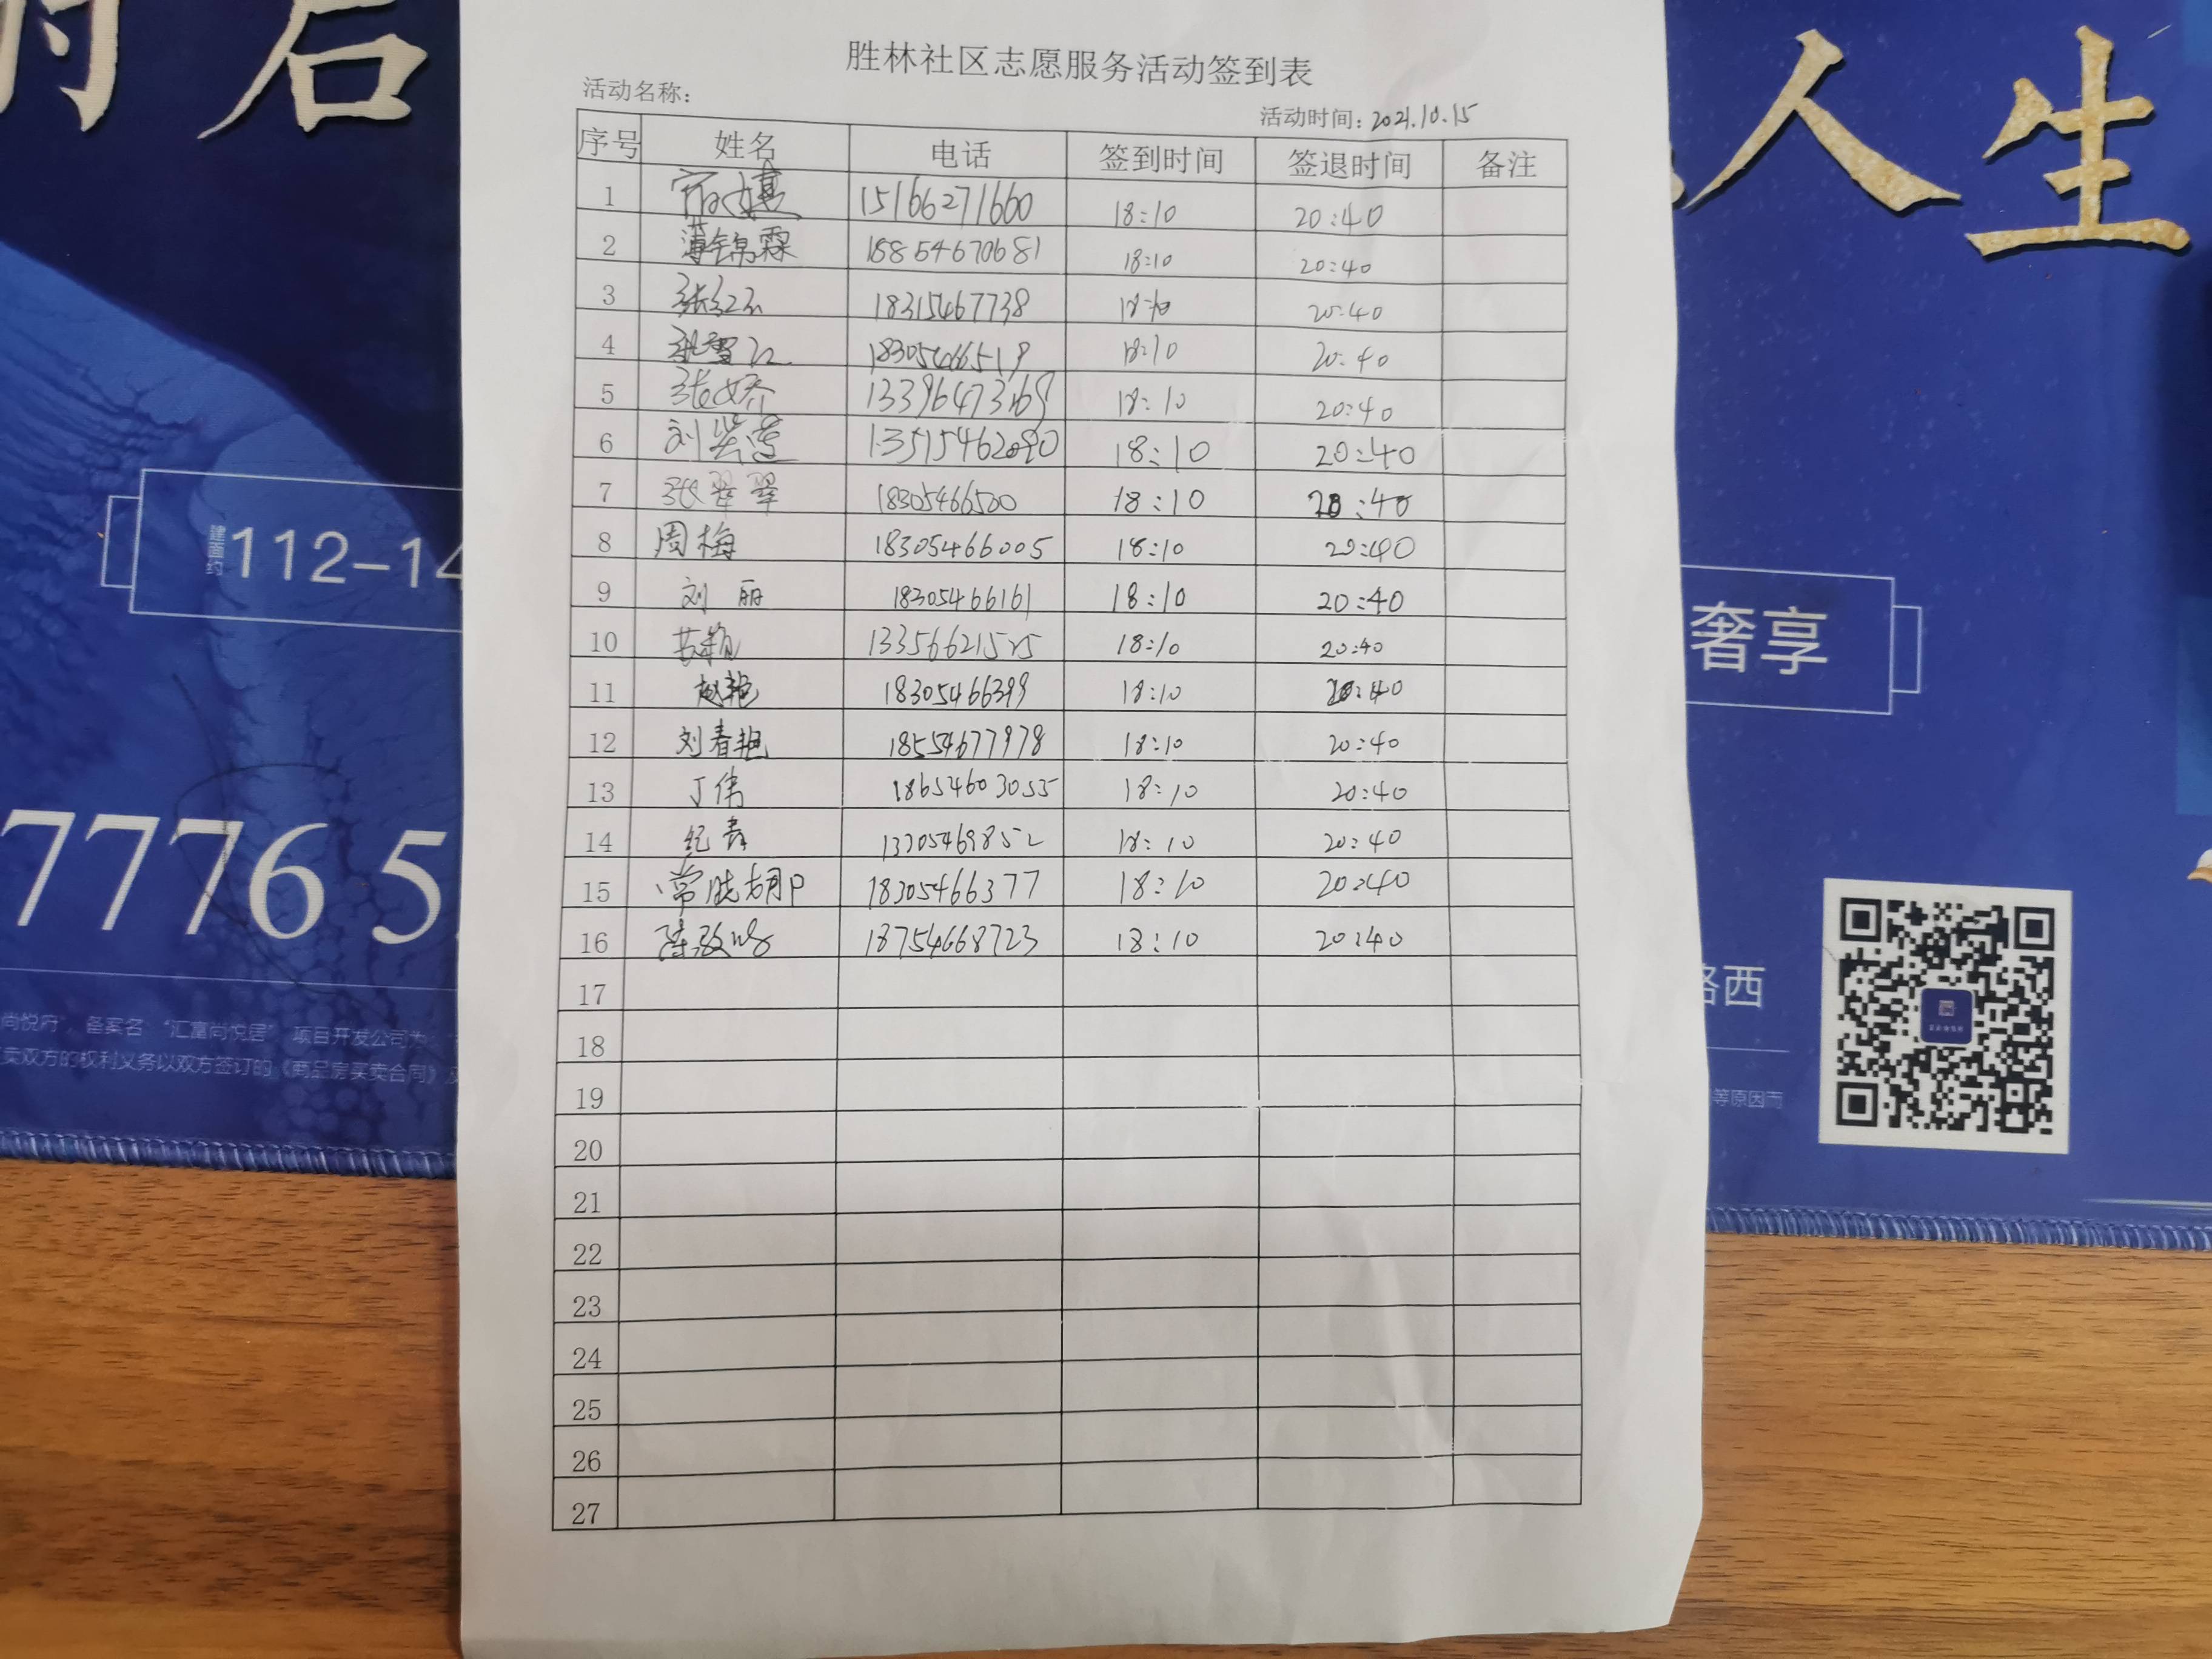 后
人生
胜林社区志愿服务活动签到表
活动名称:
活动时间: 2021.10.15
序号 姓名 电话 签到时间 签退时间 备注
1 15166271660 18:10 20:40
2 薄锦霖 18854670681 18:10 20:40
3 18315467738 18:10 20:40
4 18305466519 18:10 20:40
5 张娇 18:10 20:40
6 刘 莲 13515462090 18:10 20:40
7 张翠翠 18305466500 18:10 20:40
8 周梅 18305466005 18:10 20:40
9 刘丽 18305466161 18:10 20:40
10 13356621525 18:10 20:40
11 赵艳 18305466399 18:10 20:40
12 刘春艳 18554677978 18:10 20:40
13 丁伟 18654603055 18:10 20:40
14 纪青 18:10 20:40
15 常晓 18305466377 18:10 20:40
16 18754668723 18:10 20:40
17
18
19
20
21
22
23
24
25
26
27
建面约112-14
7776 5
尚悦府”,备案名“汇富尚悦居”项目开发公司为
卖双方的权利义务以双方签订的《商品房买卖合同》
奢享
路西
等原因而